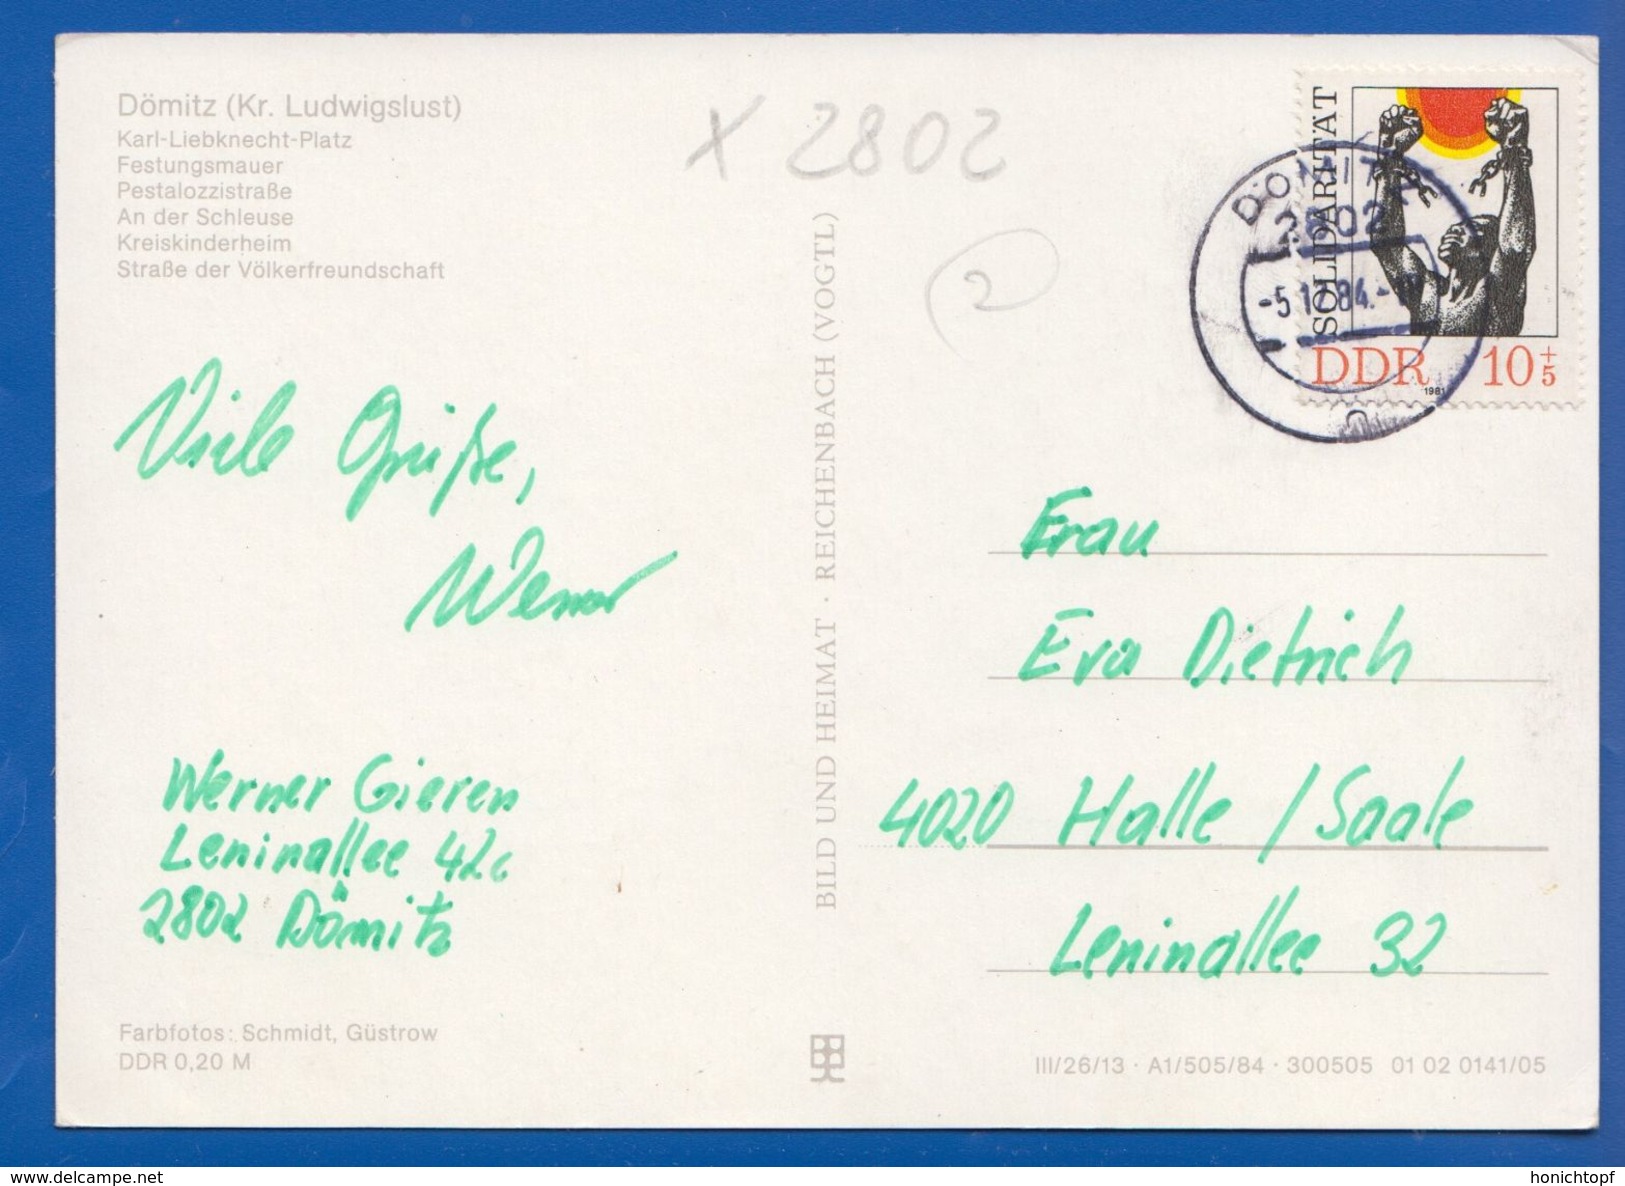 Dömitz (Kr. Ludwigslust)
Karl-Liebknecht-Platz
Festungsmauer
Pestalozzistraße
An der Schleuse
Kreiskinderheim
Straße der Völkerfreundschaft
X 2802
2
SOLIDARITÄT
DDR 10+5
1981
DÖMITZ
2802
-5.12.84.-
Viele Grüße,
Werner
Werner Gieren
Leninallee 42c
2802 Dömitz
BILD UND HEIMAT · REICHENBACH (VOGTL)
Frau
Eva Dietrich
4020 Halle / Saale
Leninallee 32
Farbfotos: Schmidt, Güstrow
DDR 0,20 M
III/26/13 · A1/505/84 · 300505 01 02 0141/05
www.delcampe.net
honichtopf